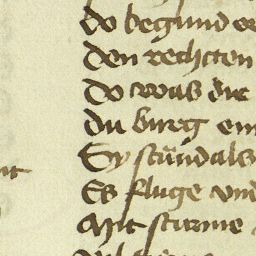 do begund er
den rechten
do was die
du bürg ein
Sy stünd als
Es fluge vnd
Mit sturme